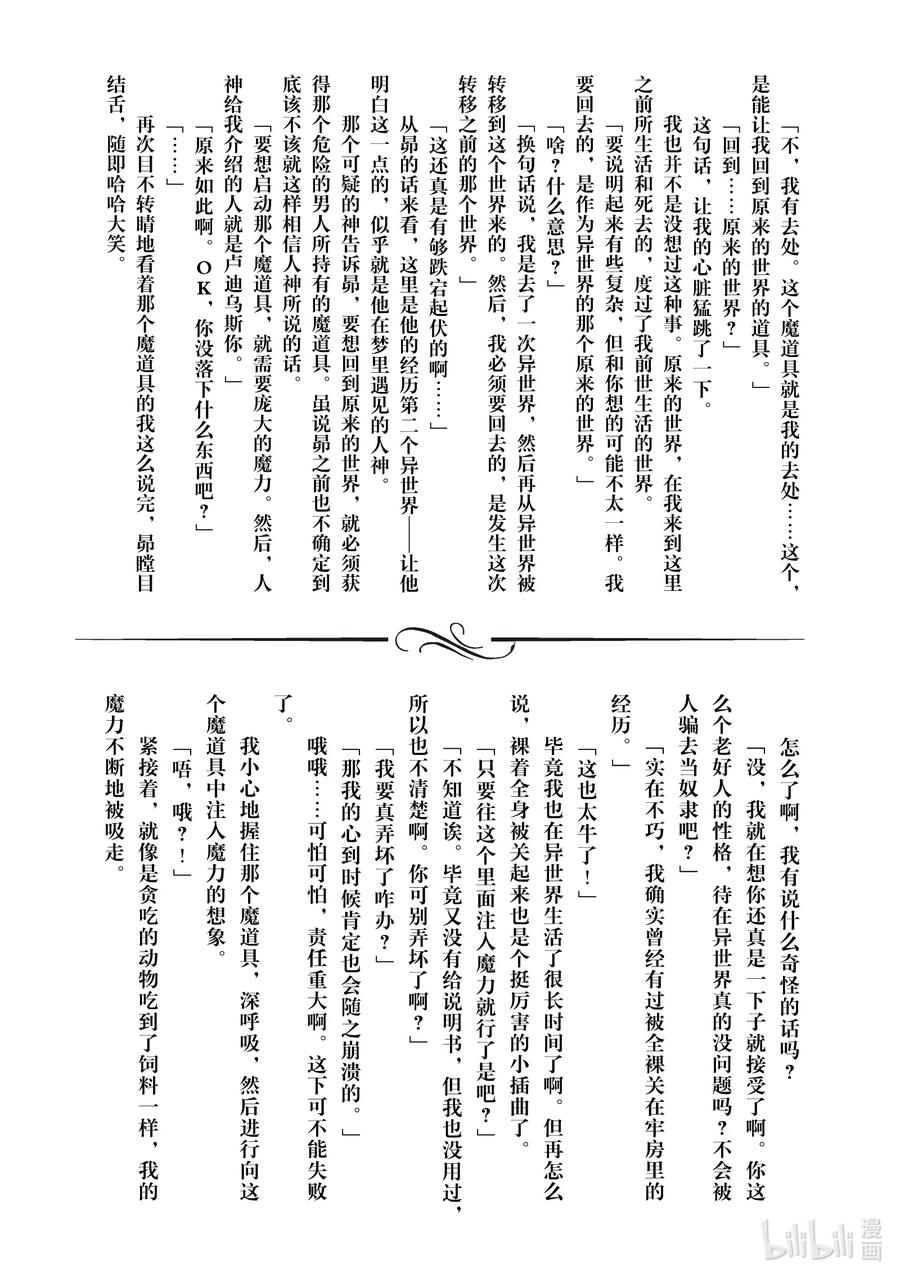 「不，我有去处。这个魔道具就是我的去处……这个，
是能让我回到原来的世界的道具。」
「回到……原来的世界？」
这句话，让我的心脏猛跳了一下。
我也并不是没想过这种事。原来的世界，在我来到这里
之前所生活和死去的，度过了我前世生活的世界。
「要说明起来有些复杂，但和你想的可能不太一样。我
要回去的，是作为异世界的那个原来的世界。」
「啥？什么意思？」
「换句话说，我是去了一次异世界，然后再从异世界被
转移到这个世界来的。然后，我必须要回去的，是发生这次
转移之前的那个世界。」
「这还真是有够跌宕起伏的啊……」
从昴的话来看，这里是他的经历第二个异世界——让他
明白这一点的，似乎就是他在梦里遇见的人神。
那个可疑的神告诉昴，要想回到原来的世界，就必须获
得那个危险的男人所持有的魔道具。虽说昴之前也不确定到
底该不该就这样相信人神所说的话。
「要想启动那个魔道具，就需要庞大的魔力。然后，人
神给我介绍的人就是卢迪乌斯你。」
「原来如此啊。OK，你没落下什么东西吧？」
「……」
再次目不转睛地看着那个魔道具的我这么说完，昴瞠目
结舌，随即哈哈大笑。
怎么了啊，我有说什么奇怪的话吗？
「没，我就在想你还真是一下子就接受了啊。你这
么个老好人的性格，待在异世界真的没问题吗？不会被
人骗去当奴隶吧？」
「实在不巧，我确实曾经有过被全裸关在牢房里的
经历。」
「这也太牛了！」
毕竟我也在异世界生活了很长时间了啊。但再怎么
说，裸着全身被关起来也是个挺厉害的小插曲了。
「只要往这个里面注入魔力就行了是吧？」
「不知道诶。毕竟又没有给说明书，但我也没用过，
所以也不清楚啊。你可别弄坏了啊？」
「我要真弄坏了咋办？」
「那我的心到时候肯定也会随之崩溃的。」
哦哦……可怕可怕，责任重大啊。这下可不能失败
了。
我小心地握住那个魔道具，深呼吸，然后进行向这
个魔道具中注入魔力的想象。
「唔，哦？！」
紧接着，就像是贪吃的动物吃到了饲料一样，我的
魔力不断地被吸走。
bilibili 漫画